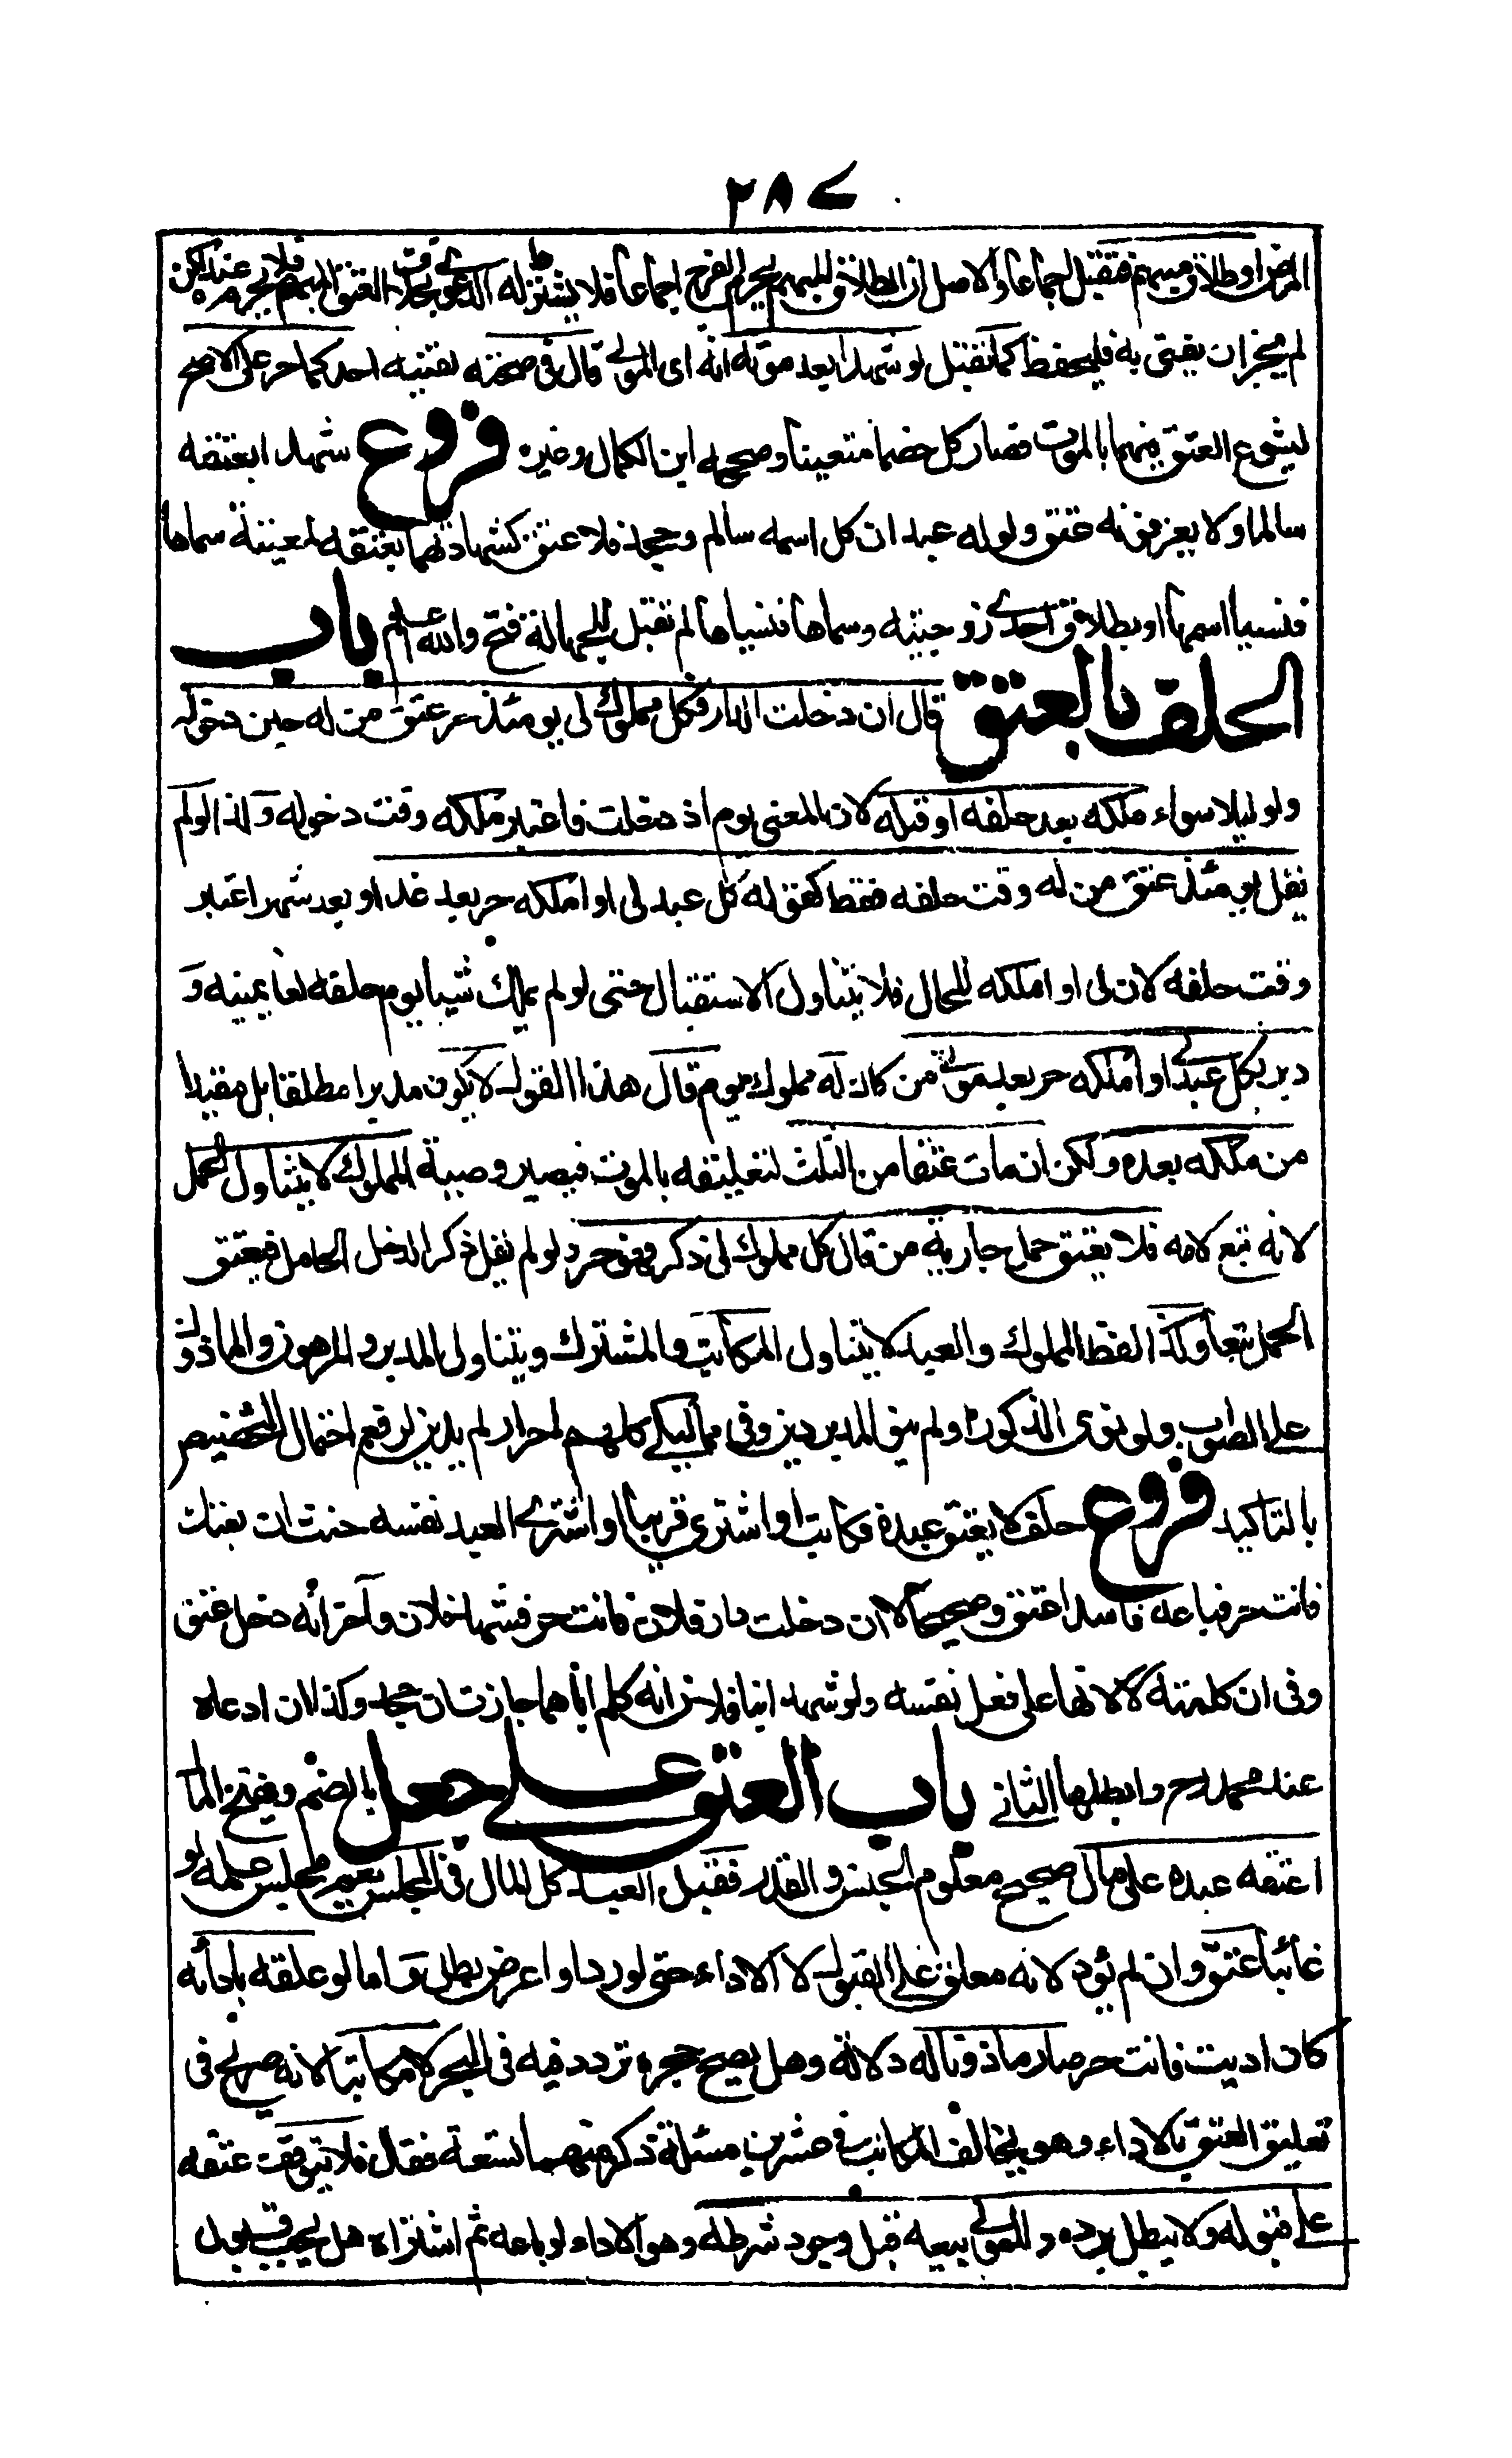 ٢٨٧
المرض او طلاق مبهم فتقبل اجماعا والاصل ان الطلاق المبهم يحرم الفرج اجماعا فلا يشترط له الدعوى بخلاف العتق المبهم فلا يحرمه عنده لكن
لم يجز ان يفتى به فليحفظ كما تقبل لو شهدا بعد موته انه اى المولى قال فى صحته لقنيه احدكما حر على الاصح
لشيوع العتق فيهما بالموت فصار كل خصما متعينا وصححه ابن الكمال وغيره فروع شهدا بعتقه
سالما ولا يعرفونه عتق ولو له عبدان كل اسمه سالم وجحد فلا عتق كشهادتهما بعتقه لمعينة سماها
فنسيا اسمها او بطلاق احدى زوجتيه وسماها فنسياها لم تقبل للجهالة فتح والله اعلم باب
الحلف بالعتق قال ان دخلت الدار فكل مملوك لى يومئذ حر عتق من له حين دخوله
ولو ليلا سواء ملكه بعد حلفه او قبله لان المعنى يوم اذ دخلت فاعتبر ملكه وقت دخوله ولذا لو لم
يقل يومئذ عتق من له وقت حلفه فقط كقوله كل عبد لى او املكه حر بعد غد او بعد شهر اعتبر
وقت حلفه لان لى او املكه للحال فلا يتناول الاستقبال حتى لو لم يملك شيئا يوم حلفه لغا يمينه و
دبر بكل عبد لى او املكه حر بعد موتى من كان له مملوك يوم قال هذا القول لا يكون مدبرا مطلقا بل مقيدا
من ملكه بعده ولكن ان مات عتقا من الثلث لتعليقه بالموت فيصير وصية المملوك لا يتناول الحمل
لانه تبع لامه فلا يعتق حمل جارية من قال كل مملوك لى ذكر فهو حر ولو لم يقل ذكر الدخل الحامل فيعتق
الحمل تبعا وكذا لفظ المملوك والعبد لا يتناول المكاتب والمشترك ويتناول المدبر والمرهون والماذون
على الصواب ولو نوى الذكور او لم ينو المدبر دين وفى مماليكى كلهم احرار لم يدين لرفع احتمال التخصيص
بالتاكيد فروع حلف لا يعتق عبده فكاتب او اشترى قريبا او اشترى العبد نفسه حنث ان بعتك
فانت حر فباعه فاسدا عتق وصحيحا لا ان دخلت دار فلان فانت حر فشهد فلان وآخر انه دخل عتق
وفى ان كلمته لا لانها على فعل نفسه ولو شهد ابنا فلان انه كلم اباهما جازت ان جحد وكذا ان ادعاه
عند محمد رح وابطلها الثانى باب العتق على جعل بالضم ويفتح المال
اعتقه عبده على مال صحيح معلوم الجنس والقدر فقبل العبد كل المال فى المجلس يعم مجلس علمه لو
غائبا عتق وان لم يؤد لانه معلق على القبول لا الاداء حتى لو رد او اعرض بطل و اما لو علقه بادائه
كان اديت فانت حر صار ماذونا له دلالة وهل يصح حجره تردد فيه فى البحر لا مكاتبا لانه صريح فى
تعليق العتق بالاداء وهو يخالف المكاتب فى عشرين مسئلة ذكر منها تسعة فقال فلا يتوقف عتقه
على قبوله ولا يبطل برده وللمولى بيعه قبل وجود شرطه وهو الاداء لو باعه ثم اشتراه هل يجب قبول